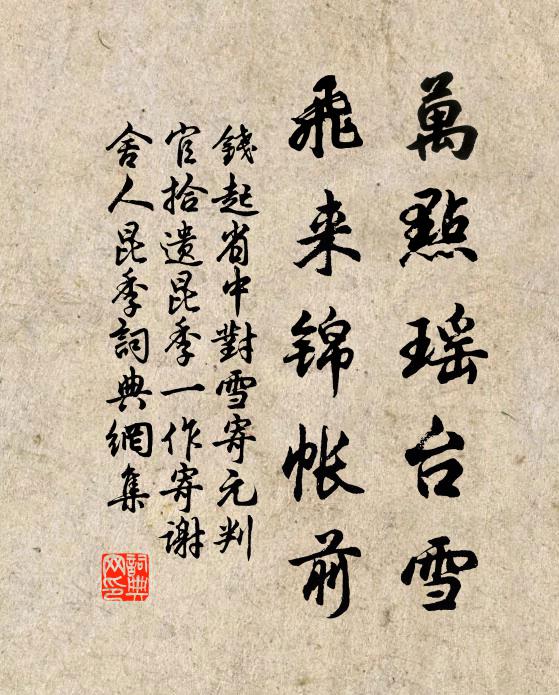 萬點瑶台雪
飛来锦帐前
錢起省中對雪寄元判
官拾遗昆季一作寄谢
舍人昆季詞典網集
詞典
网印